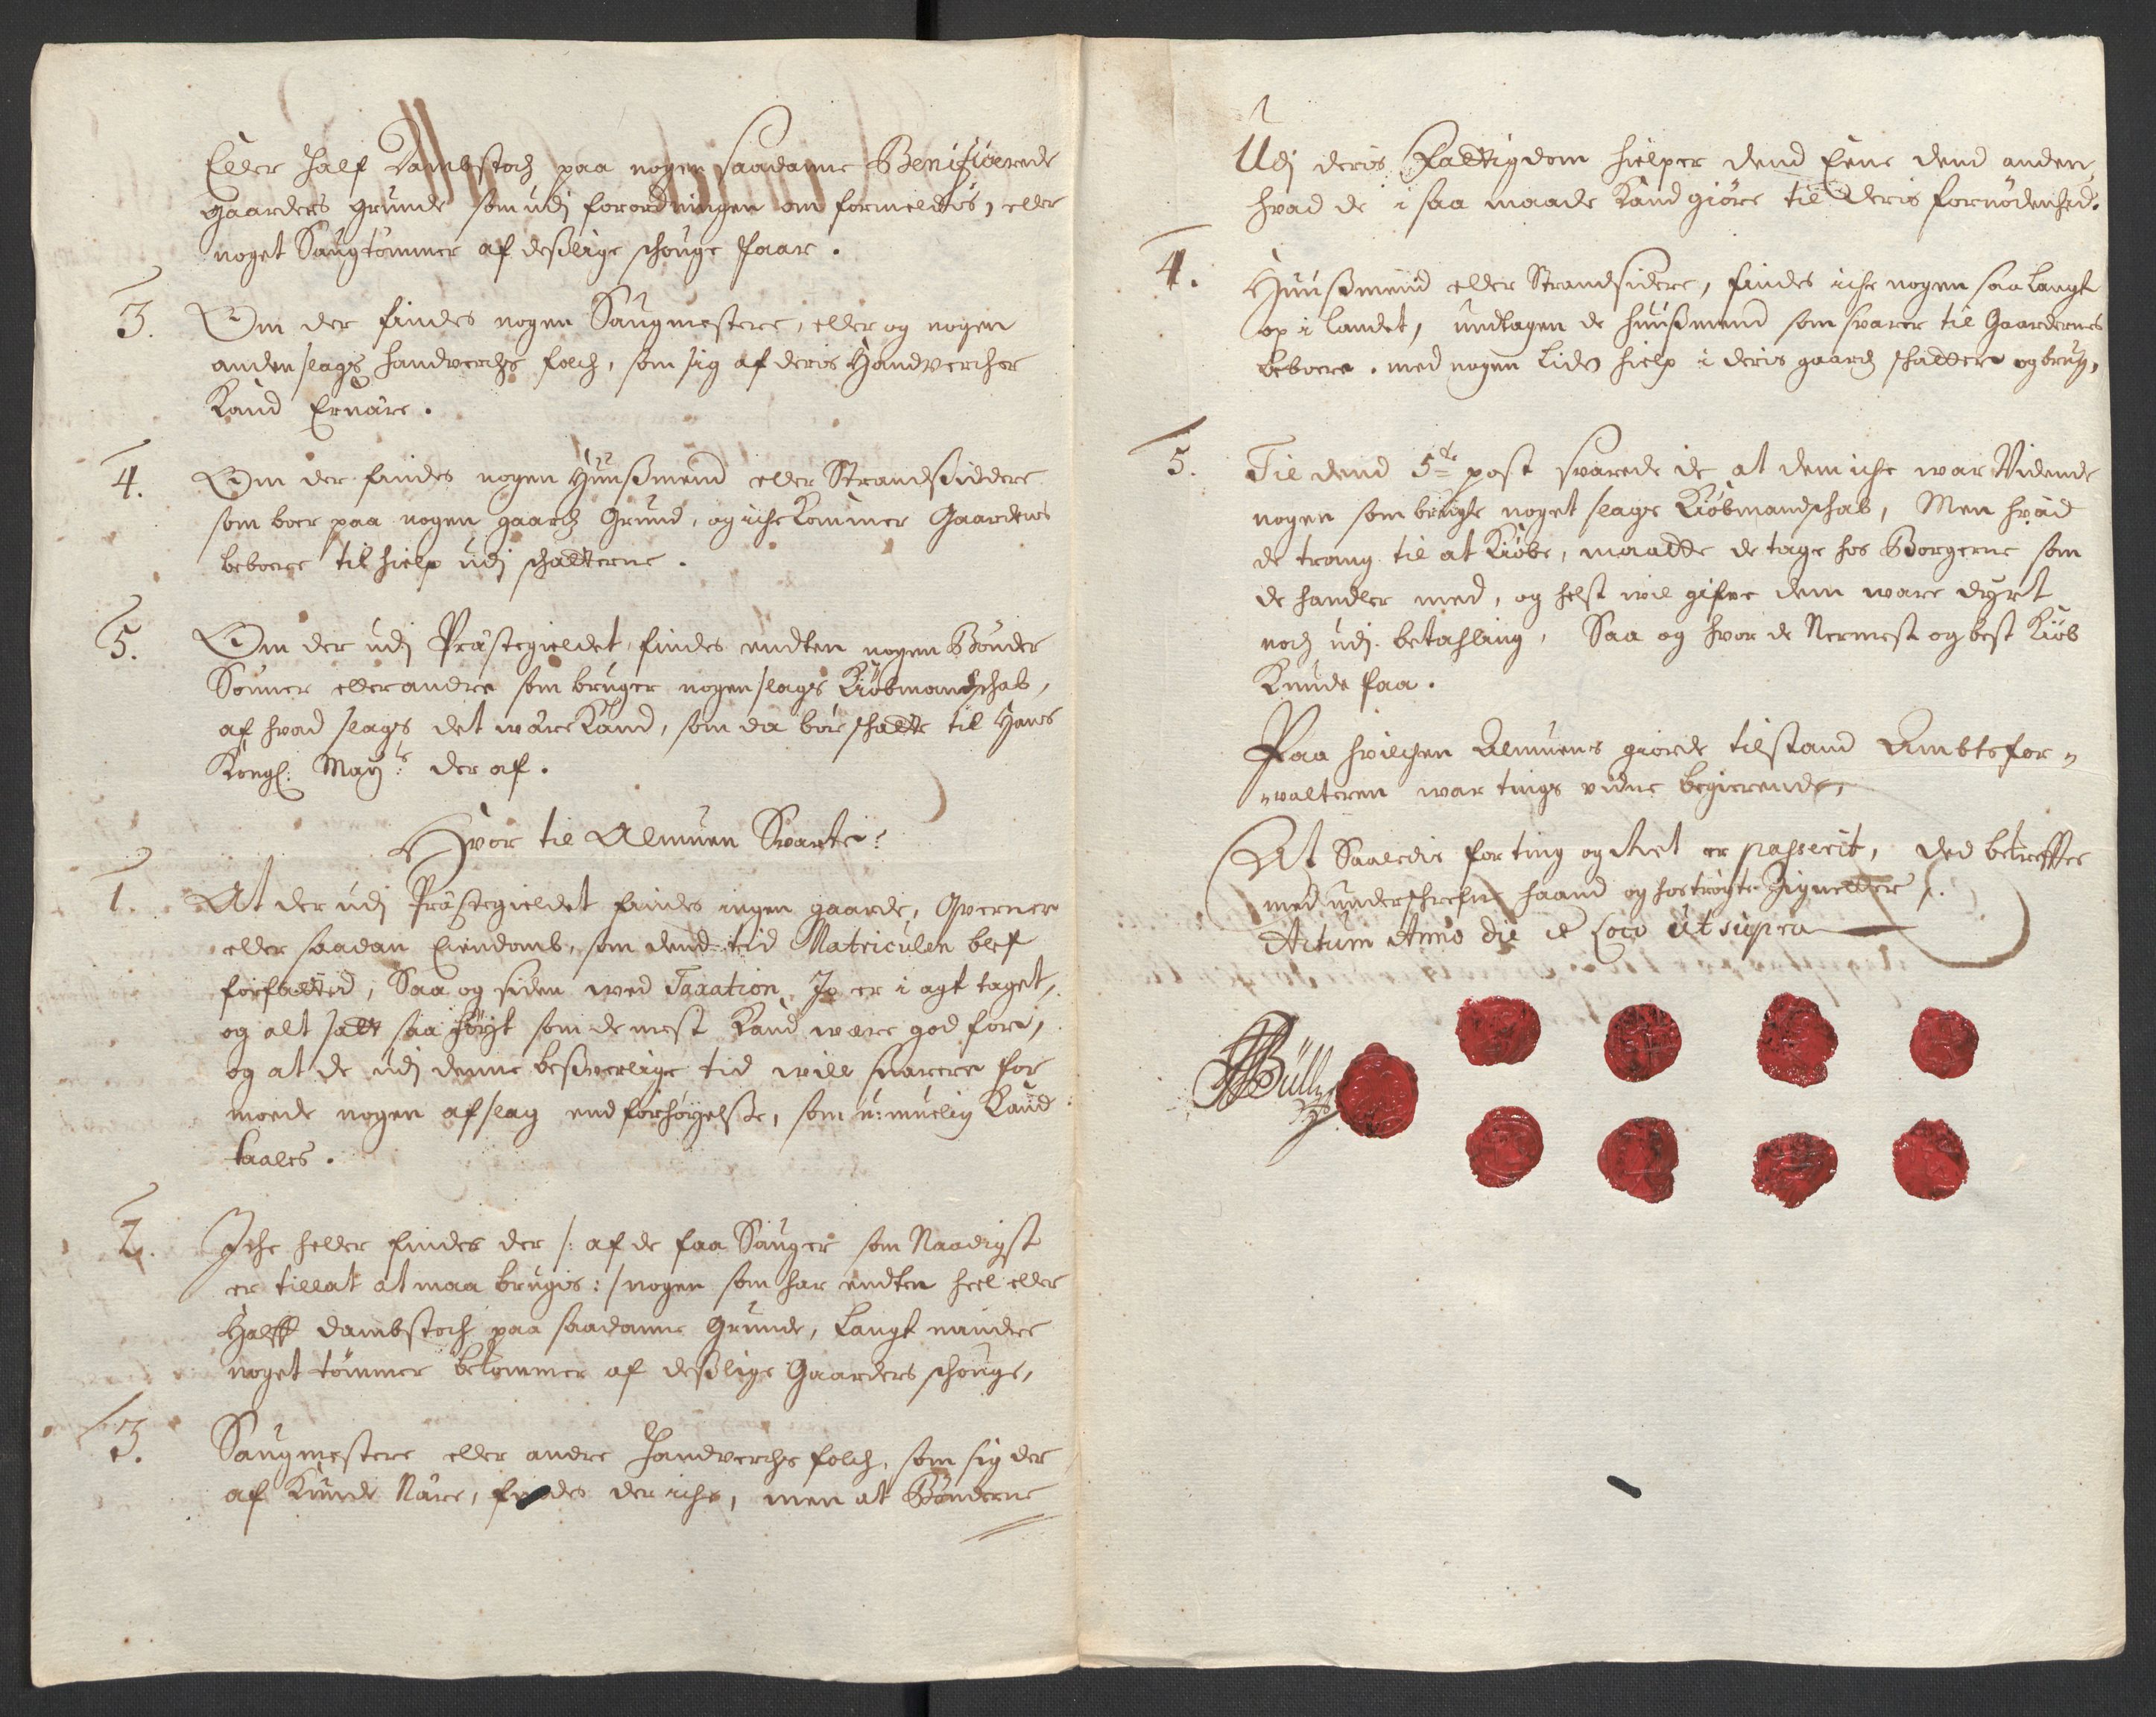 Eller half Dambstoch paa nogen saadanne Benificerede
gaarders grunde som udj forordningen om formeldis, eller
noget Saugtømmer af deslige schouge faar.
3. Om der findes nogen Saugmestere, eller og nogen
anden slags handverchs folch, som sig af deris Handvercher
Kand Ernære.
4. Om der findes nogen Huusmend eller Strandsiddere
som boer paa nogen gaards Grund, og iche kommer Gaardens
beboere til hielp udj schatterne.
5. Om der udj Præstegieldet findes endten nogen Bønder
Sønner eller andre som bruger nogen slags Kiøbmandschab,
af hvad slags det være Kand, som da bør schatte til Hans
Kongl: May:ts der af.
Hvor til Almuen Svarte:
1. At der udj Præstegieldet findes ingen gaarde, Qverner
eller saadan Eiendomb, som dend tid Matriculen blef
forfattid, Saa og siden med Taxation Jo er i agt taget,
og alt satt saa høyt som de mest Kand være god fore,
og at de udj denne besverlige tid vill snarere for
moede nogen afslag end forhøyelse, som u:muelig Kand
taales.
2. Iche heller findes der /: af de faa Sauger som Naadigst
er tillat at maa brugis :/ nogen som har endten heel eller
Halff dambstoch paa saadanne Grunde, langt mindre
noget tømmer bekommer af deslige Gaarders schouge,
3. Saugmestere eller andre Handverchs folch, som sig der
af Kunde Nære, findes der iche, men at Bønderne
Udj deris Fattigdom hielper dend Eene dend anden,
hvad de i saa maade Kand giøre til deris fornødenhed.
4. Huusmend eller Strandsidere, findes iche nogen saa langt
op i landet, undtagen de huusmend som svarer til Gaardernes
beboere, med nogen liden hielp i deris gaards schatter og brug,
5. Til dend 5te post svarede de at dem iche war Vidende
nogen som brugte noget slags Kiøbmandschab, Men hvad
de trang til at Kiøbe, maatte de tage hos Borgerne som
de handler med, og helst vil gifve dem ware dyrt
noch udj betahling, Saa og hvor de Nermest og best Kiøb
Kunde faa.
Paa hvilchen Almuens giorde tilstand Ambtsfor=
=valteren war tings vidne begierende,
At Saaledis for ting og Ret er passerit, ded betreffter
med underschrefne haand og hostrøgte Zigneter,
Actum Anno die et Loco ut supra